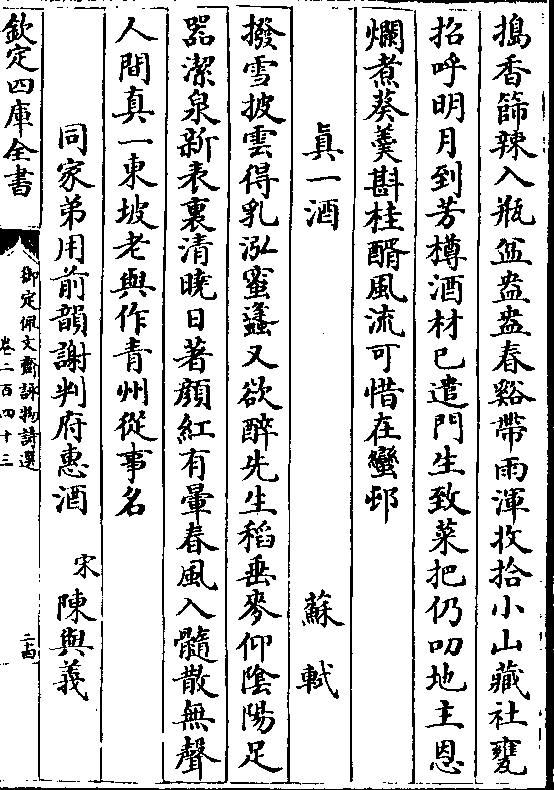 搗香篩辣入瓶盆盎盎春谿帶雨渾收拾小山藏社甕
招呼明月到芳樽酒材已遣門生致菜把仍叨地主恩
爛煮葵羹斟桂醑風流可惜在蠻邨
真一酒 蘇軾
撥雪披雲得乳泓蜜蠭又欲醉先生稻垂麥仰陰陽足
器潔泉新表裏清曉日著顔紅有暈春風入髓散無聲
人間真一東坡老與作青州從事名
同家弟用前韻謝判府惠酒 宋陳與義
欽定四庫全書
御定佩文齋詠物詩選
卷二百四十三
二十四